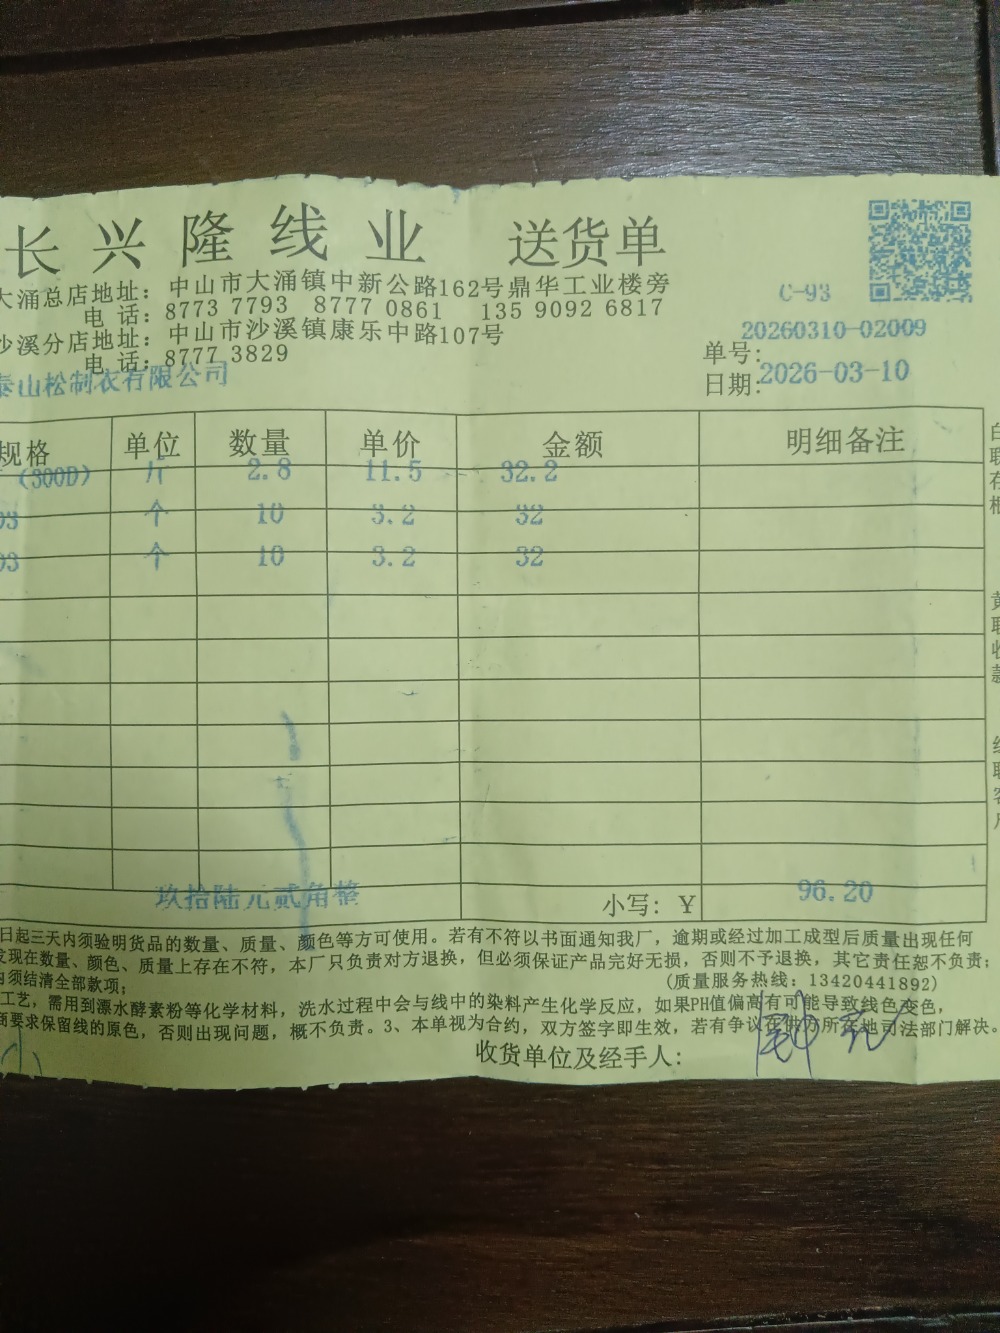 长兴隆线业 送货单
大涌总店地址：中山市大涌镇中新公路162号鼎华工业楼旁
电 话：8773 7793 8777 0861 135 9092 6817
C-93
沙溪分店地址：中山市沙溪镇康乐中路107号
电 话：8777 3829
单号：20260310-02009
泰山松制衣有限公司
日期：2026-03-10
规格 单位 数量 单价 金额 明细备注
(300D) 斤 2.8 11.5 32.2
03 个 10 3.2 32
03 个 10 3.2 32
玖拾陆元贰角整 小写：￥ 96.20
日起三天内须验明货品的数量、质量、颜色等方可使用。若有不符以书面通知我厂，逾期或经过加工成型后质量出现任何
发现在数量、颜色、质量上存在不符，本厂只负责对方退换，但必须保证产品完好无损，否则不予退换，其它责任恕不负责；
内须结清全部款项； (质量服务热线：13420441892)
工艺，需用到漂水酵素粉等化学材料，洗水过程中会与线中的染料产生化学反应，如果PH值偏高有可能导致线色变色，
商要求保留线的原色，否则出现问题，概不负责。3、本单视为合约，双方签字即生效，若有争议在供方所在地司法部门解决。
收货单位及经手人：